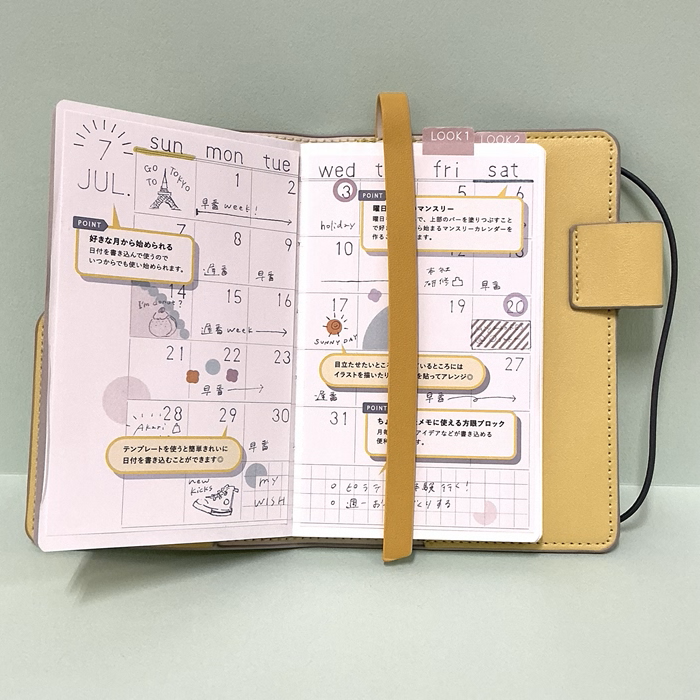 LOOK1 LOOK2
7
JUL.
sun mon tue wed fri sat
GO TO TOKYO
1 2 3 5 6
早番 week!
POINT
好きな月から始められる
日付を書き込んで使うので
いつからでも使い始められます。
POINT
マンスリー
上部のバーを塗りつぶすこと
から始まるマンスリーカレンダーを
holiday
7 8 9 10
遅番 早番
本社
研修
早番
14 15 16 17 19 20
遅番 week
SUNNY DAY
21 22 23 27
早番
目立たせたいところ
ているところには
イラストを描いたり
を貼ってアレンジ◎
遅番 早番
28 29 30 31
Akari
早番
テンプレートを使うと簡単きれいに
日付を書き込むことができます◎
POINT
メモに使える方眼ブロック
アイデアなどが書き込める
new kicks
my WISH
行く!
週一お
くりする